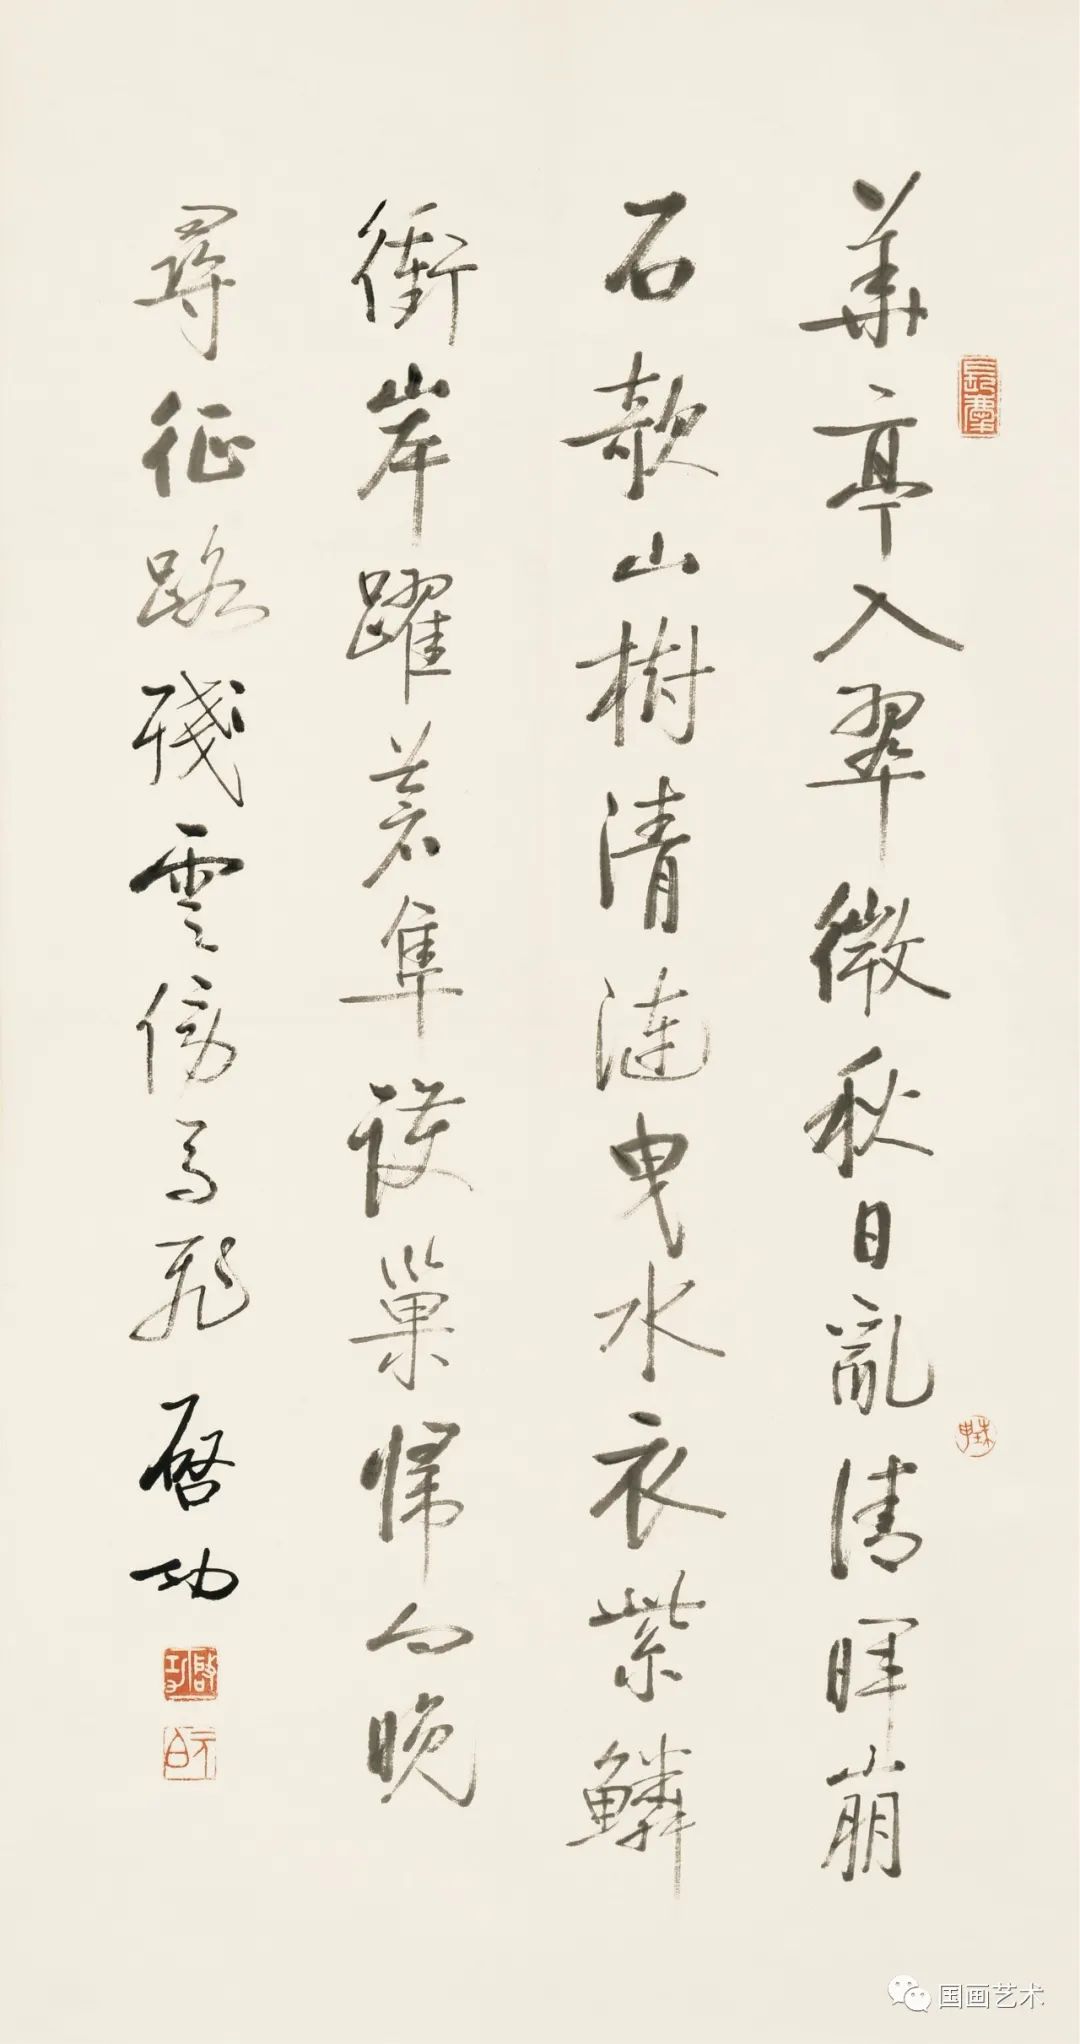 華亭入翠微秋日亂清暉崩
石欹山樹清漣曳水衣紫鱗
衝岸躍蒼隼護巢歸向晚
尋征路殘雲傍馬飛 啓功
啓功
元白
国画艺术